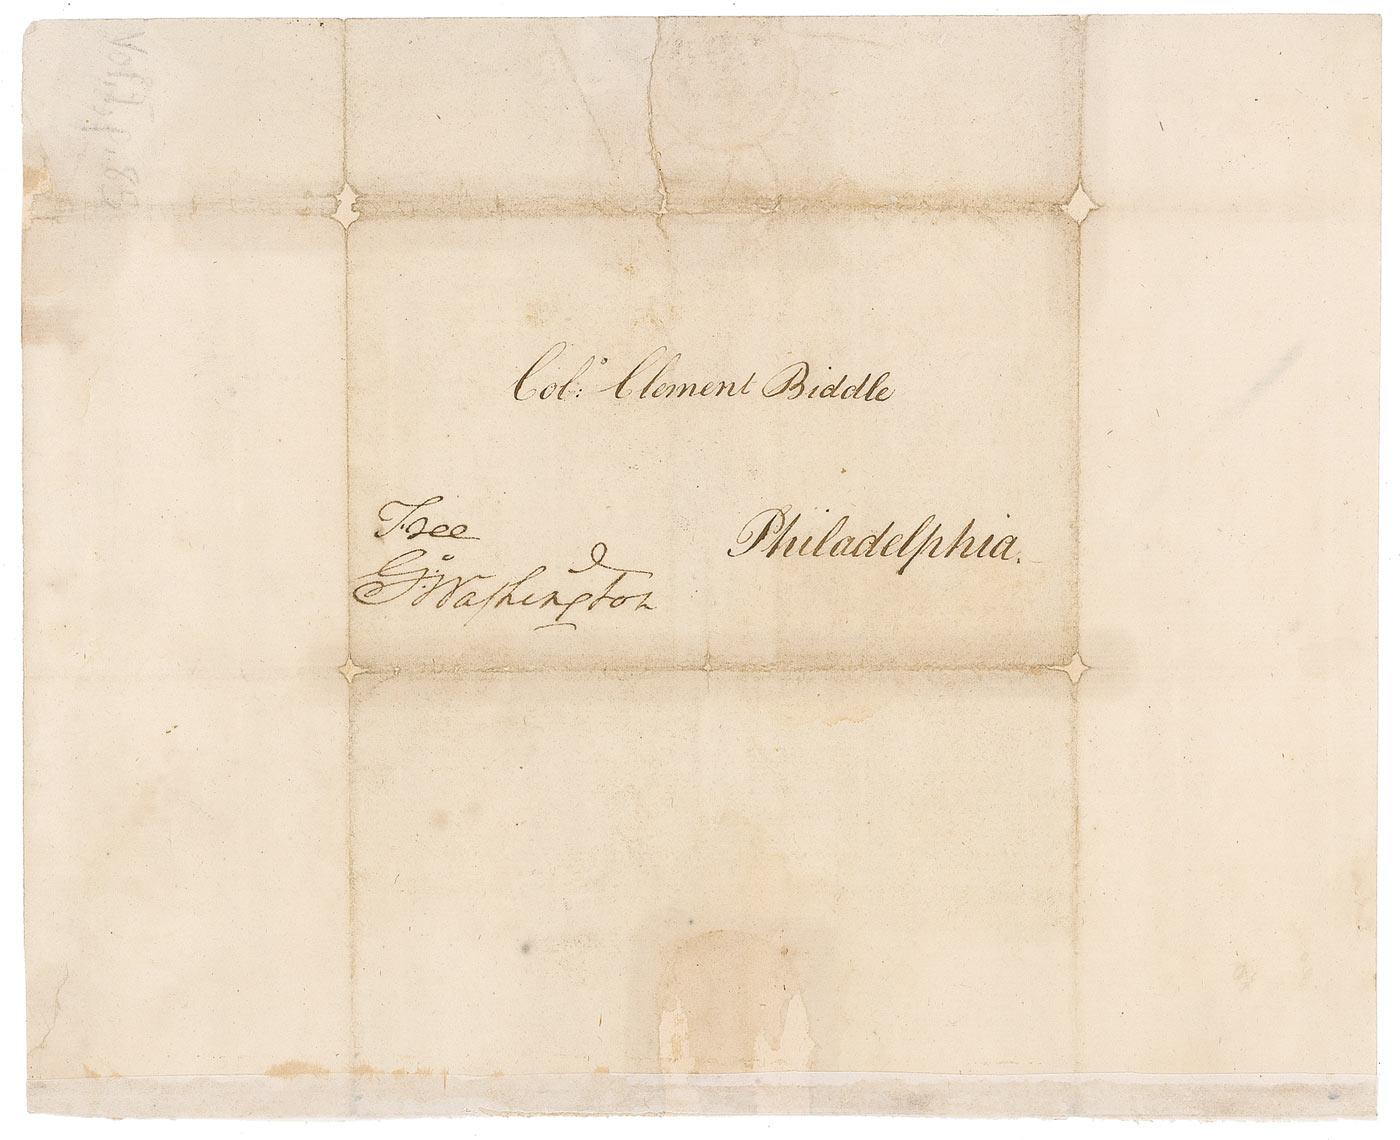 Col:º Clement Biddle
Free
Gº: Washington
Philadelphia.